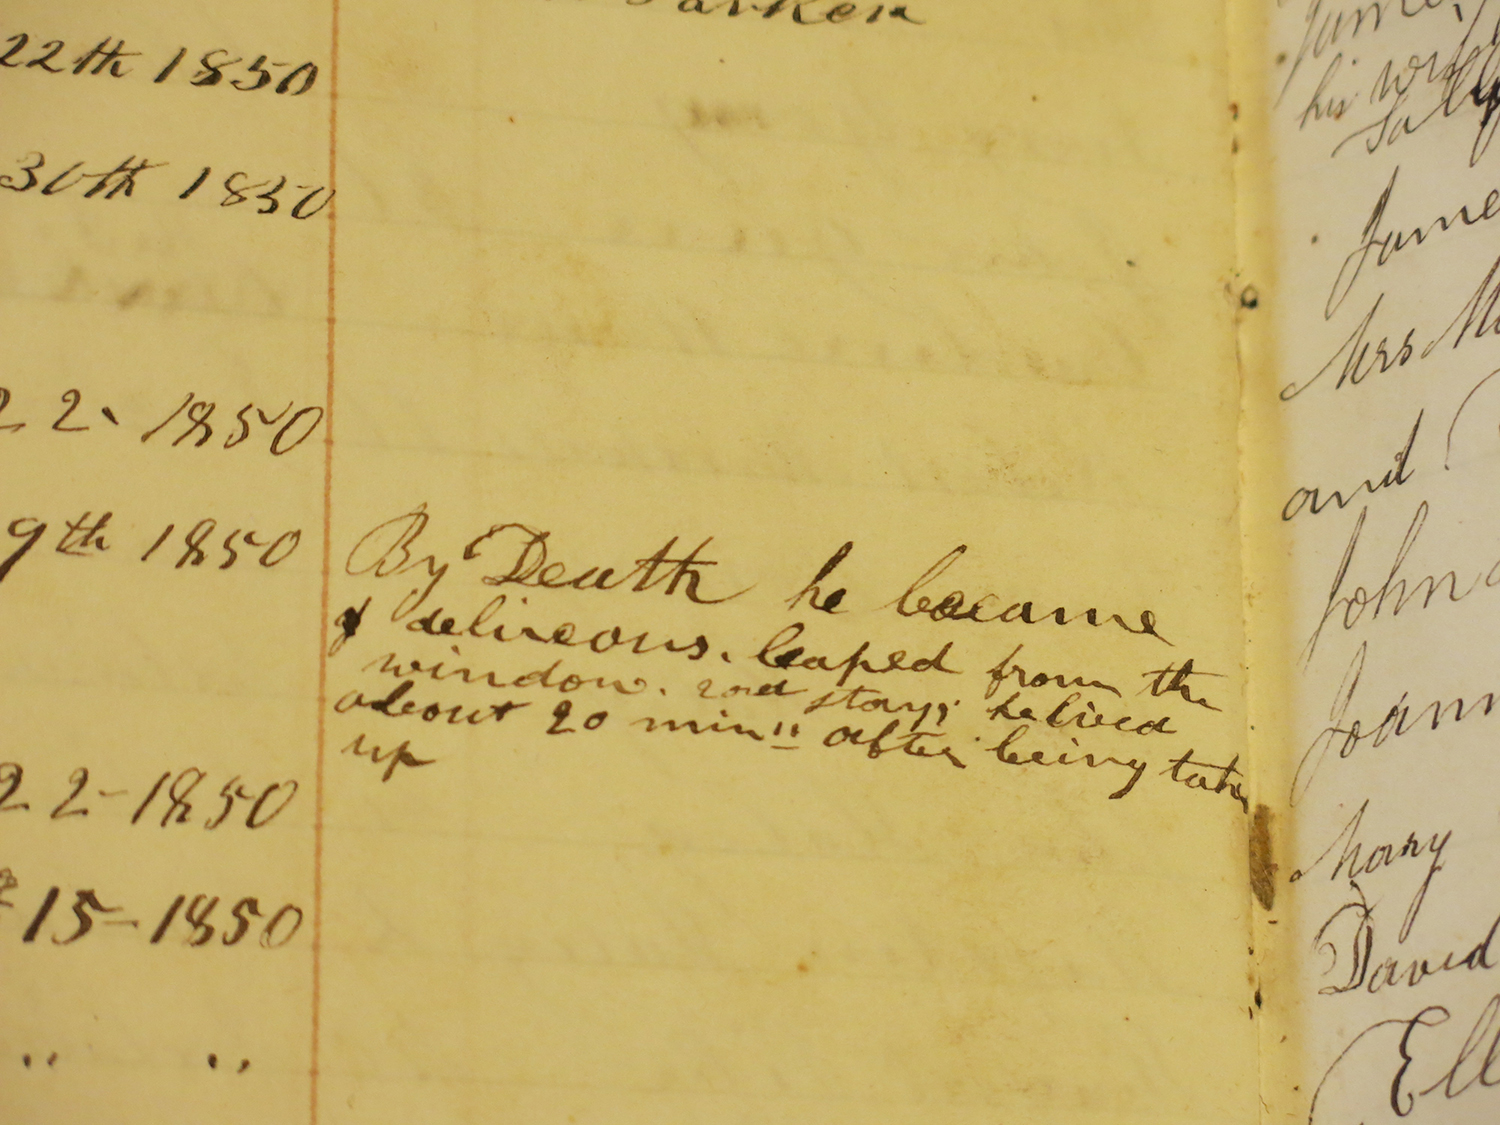 22th 1850
30th 1850
22. 1850
9th 1850
By Death he became
& delireous. leaped from the
window. 2nd story; he lived
about 20 min" after being taken
up
22-1850
15-1850
" "
his wife
Sally
James
Mrs
and
John
Joann
Mary
David
Ell